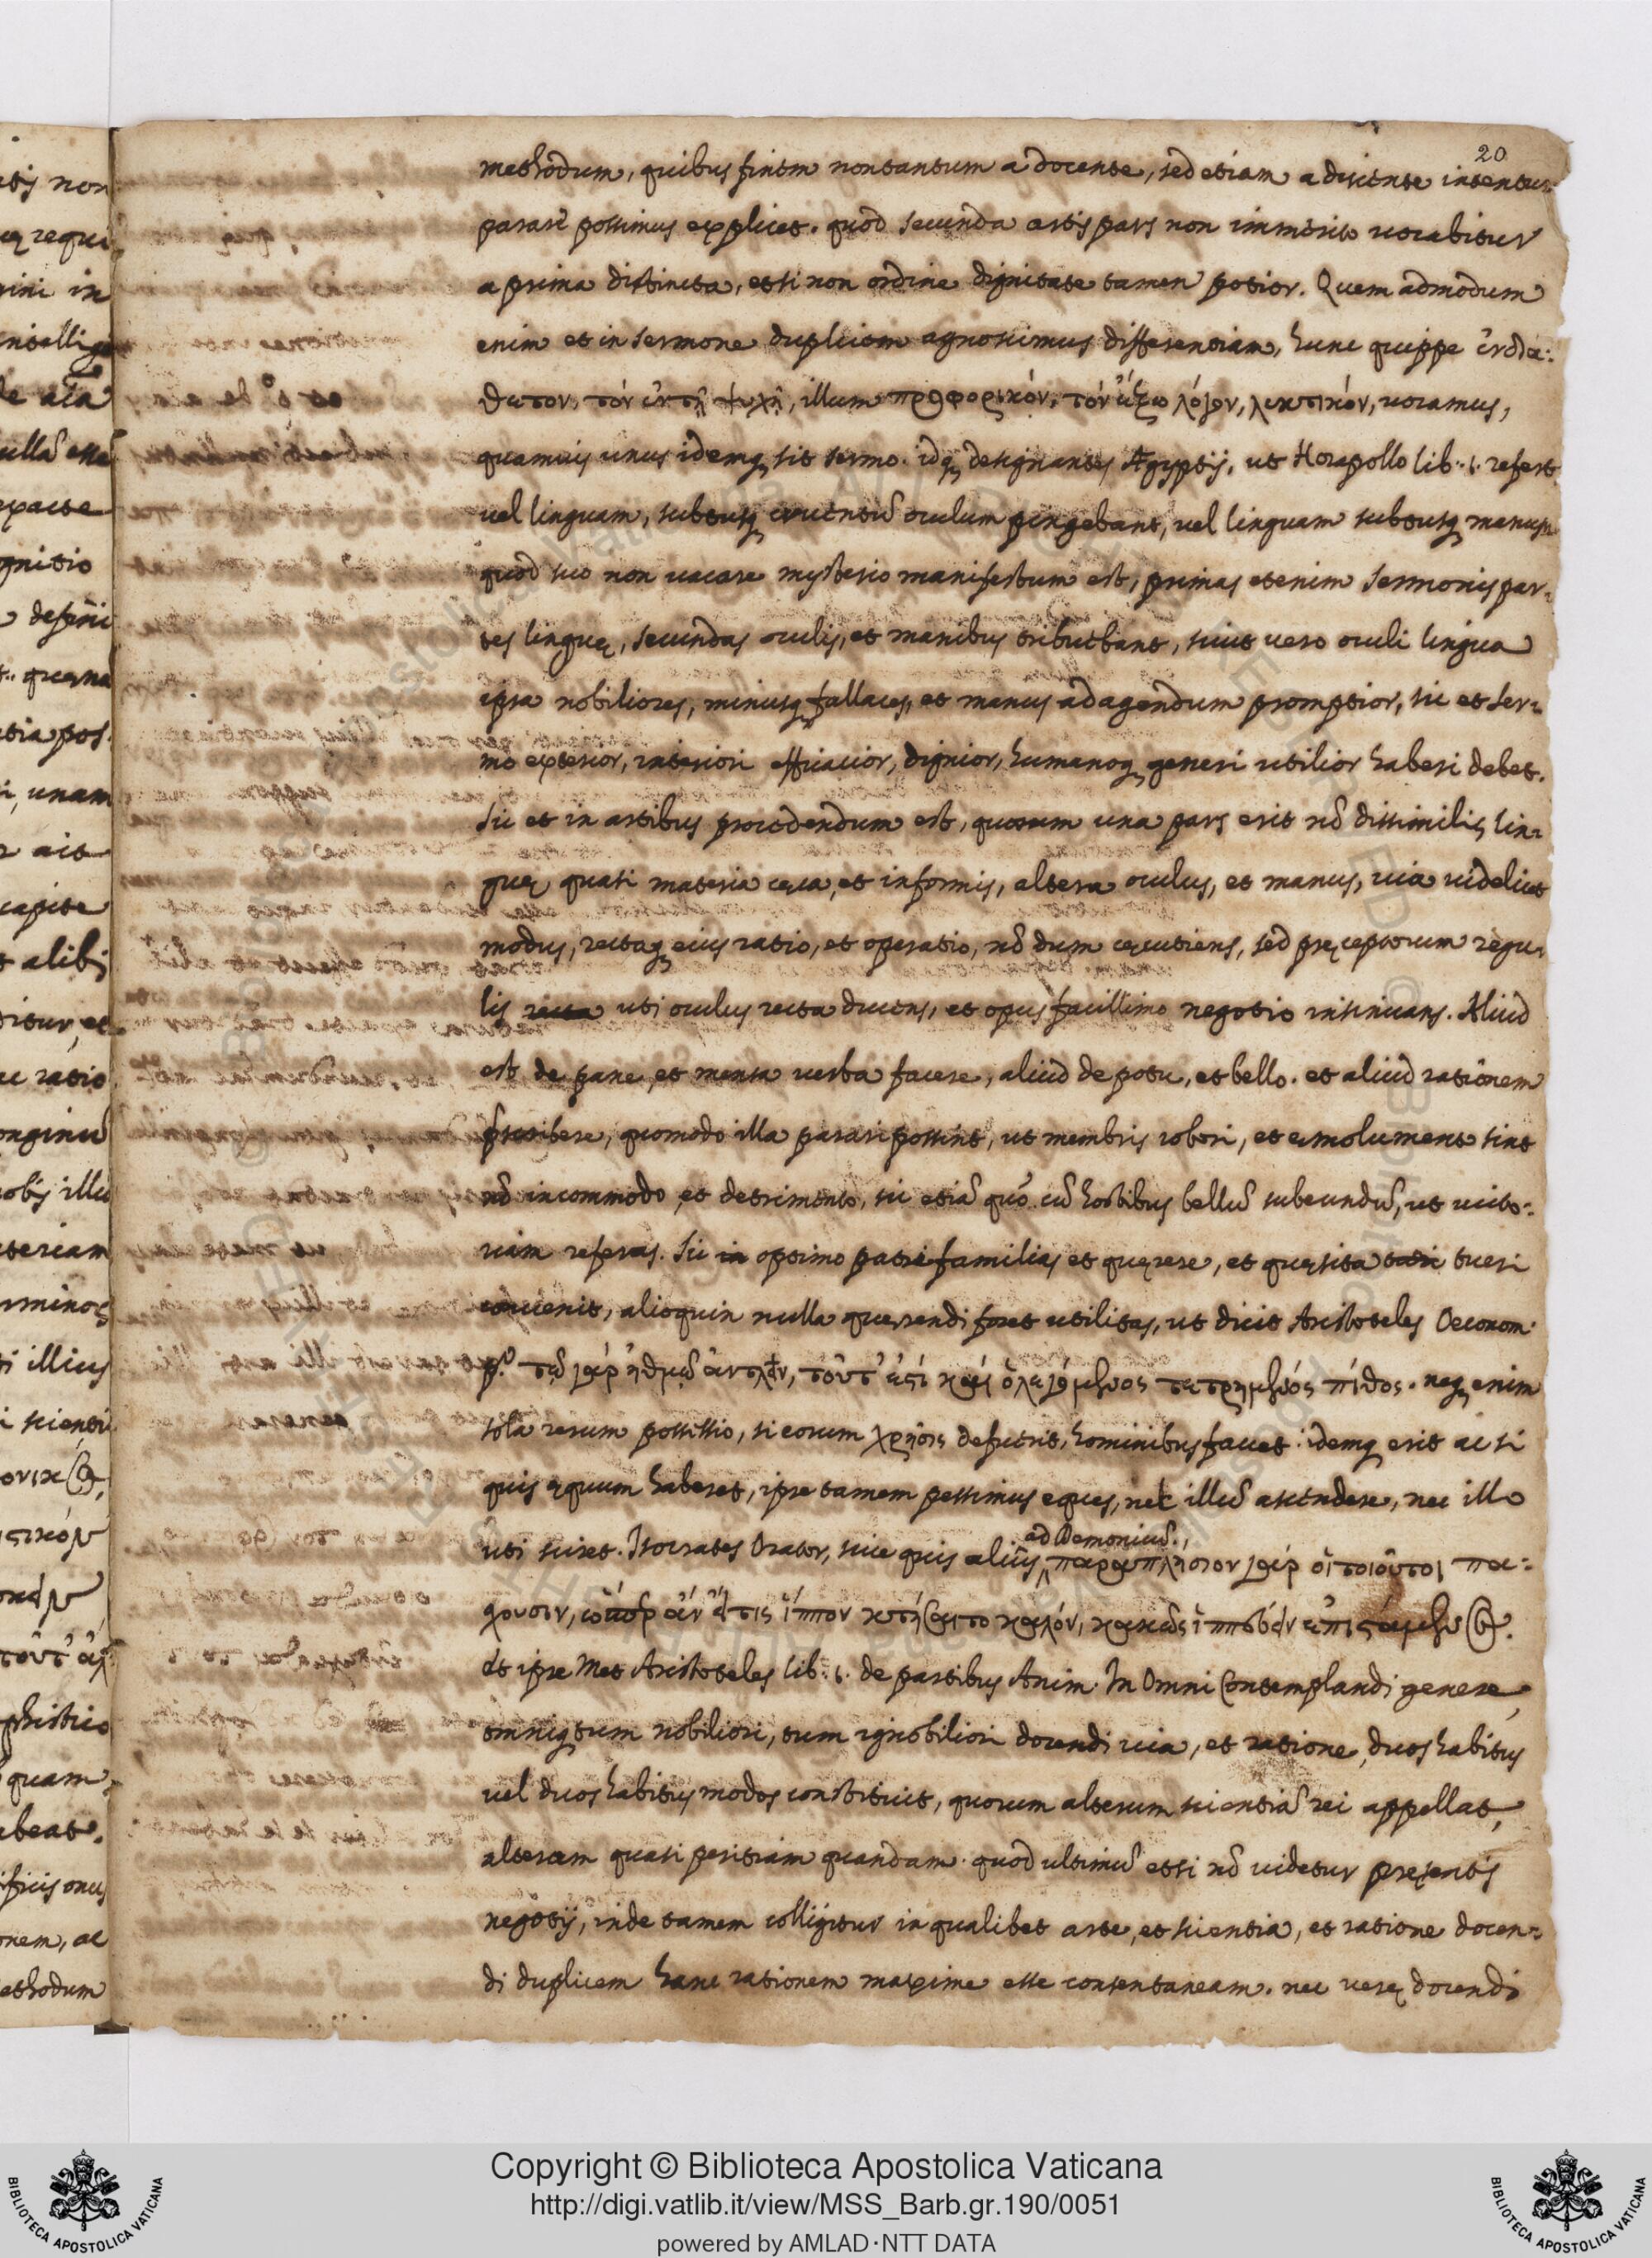 20
methodum, quibus finem non tantum a docente, sed etiam a discente intentum
parare possimus explicet. quod secunda artis pars non immerito vocabitur
a prima distincta, etsi non ordine dignitate tamen potior. Quem admodum
enim et in sermone duplicem agnoscimus differentiam, hunc quippe ἐνδιά-
θετον, τὸν ἐν τῇ ψυχῇ, illum προφορικόν, τὸν ἔξω λόγον, λεκτικόν, vocamus,
quamvis unus idemq sit sermo. idq designantes Ægyptij, ut Horapollo lib. 1. refert
vel linguam, subtusq cruentũ oculum pingebant, vel linguam subtusq manum
quod suo non vacare mysterio manifestum est, primas etenim sermonis par-
tes linguę, secundas oculis, et manibus tribuebant, sicut vero oculi lingua
ipsa nobiliores, minusq fallaces, et manus ad agendum promptior, sic et ser-
mo exterior, interiori efficacior, dignior, humanoq generi utilior haberi debet.
Sic et in artibus procedendum est, quorum una pars erit nõ dissimilis lin-
guę quasi materia cęca, et informis, altera oculus, et manus, via videlicet
modus, rectaq eius ratio, et operatio, nõ dum cęcutiens, sed pręceptorum regu-
lis recta uti oculus recta ducens, et opus facillimo negotio insinuans. Aliud
est de pane, et mensa verba facere, aliud de potu, et bello. et aliud rationem
pręscribere, quomodo illa parari possint, ut membris robori, et emolumento sint
nõ incommodo, et detrimento, sic etiã quõ cũ hostibus bellũ subeundũ, ut victo-
riam referas. Sic in optimo patrifamilias et quęrere, et quęsita tueri
convenit, alioquin nulla quęrendi foret utilitas, ut dicit Aristoteles Oeconom.
pº. τῷ γὰρ ἠθμῷ ἀντλεῖν, τοῦτ' ἐστὶ καὶ ὁ λεγόμενος τετρημένος πίθος. neq enim
sola rerum possessio, si eorum χρῆσις defuerit, hominibus favet. idemq erit ac si
quis equum haberet, ipse tamem pessimus eques, nec illũ ascendere, nec illo
uti sciret. Isocrates Orator, sive quis alius,
ad Demonicũ.,
παραπλήσιον γὰρ οἱ τοιοῦτοι πά-
χουσιν, ὥσπερ ἂν εἴ τις ἵππον κτήσαιτο καλόν, κακῶς ἱππεύειν ἐπιστάμενος.
et ipse Met Aristoteles lib. 1. de partibus Anim. In Omni Contemplandi genere,
omniq tum nobiliori, tum ignobiliori docendi via, et ratione, duos habitus
vel duos habitus modos constituit, quorum alterum scientiã rei appellat,
alteram quasi peritiam quandam. quod ultimũ etsi nõ videtur pręsentis
negotij, inde tamem colligitur in qualibet arte, et scientia, et ratione docen-
di duplicem hanc rationem maxime esse consentaneam. nec verę docendi
Copyright © Biblioteca Apostolica Vaticana
http://digi.vatlib.it/view/MSS_Barb.gr.190/0051
powered by AMLAD·NTT DATA
BIBLIOTECA APOSTOLICA VATICANA
BIBLIOTECA APOSTOLICA VATICANA